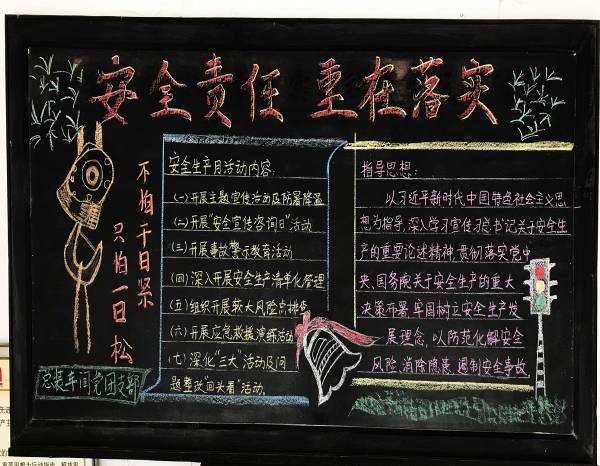 安全责任 重在落实
不怕千日紧
只怕一日松
总装车间党团支部
安全生产月活动内容:
(一)开展主题宣传活动及防暑降温
(二)开展"安全宣传咨询日"活动
(三)开展事故警示教育活动
(四)深入开展安全生产清单化管理
(五)组织开展较大风险点排查
(六)开展应急救援演练活动
(七)深化"三大"活动及问
题整改回头看"活动
指导思想:
以习近平新时代中国特色社会主义思
想为指导,深入学习宣传习总书记关于安全生
产的重要论述精神,贯彻落实党中
央、国务院关于安全生产的重大
决策部署,牢固树立安全生产发
展理念,以防范化解安全
风险、消除隐患、遏制安全事故